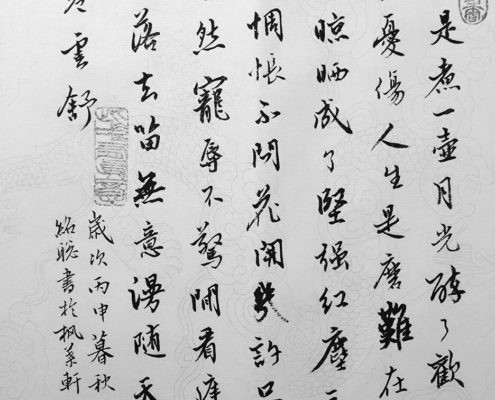 是煮一壺月光醉了歡
憂傷人生是磨難在
晾晒成了堅强红塵
惆悵不問花開幾許只
然寵辱不驚閒看庭
落去留無意漫随天
雲舒
歲次丙申暮秋
紹聪書於枫葉軒